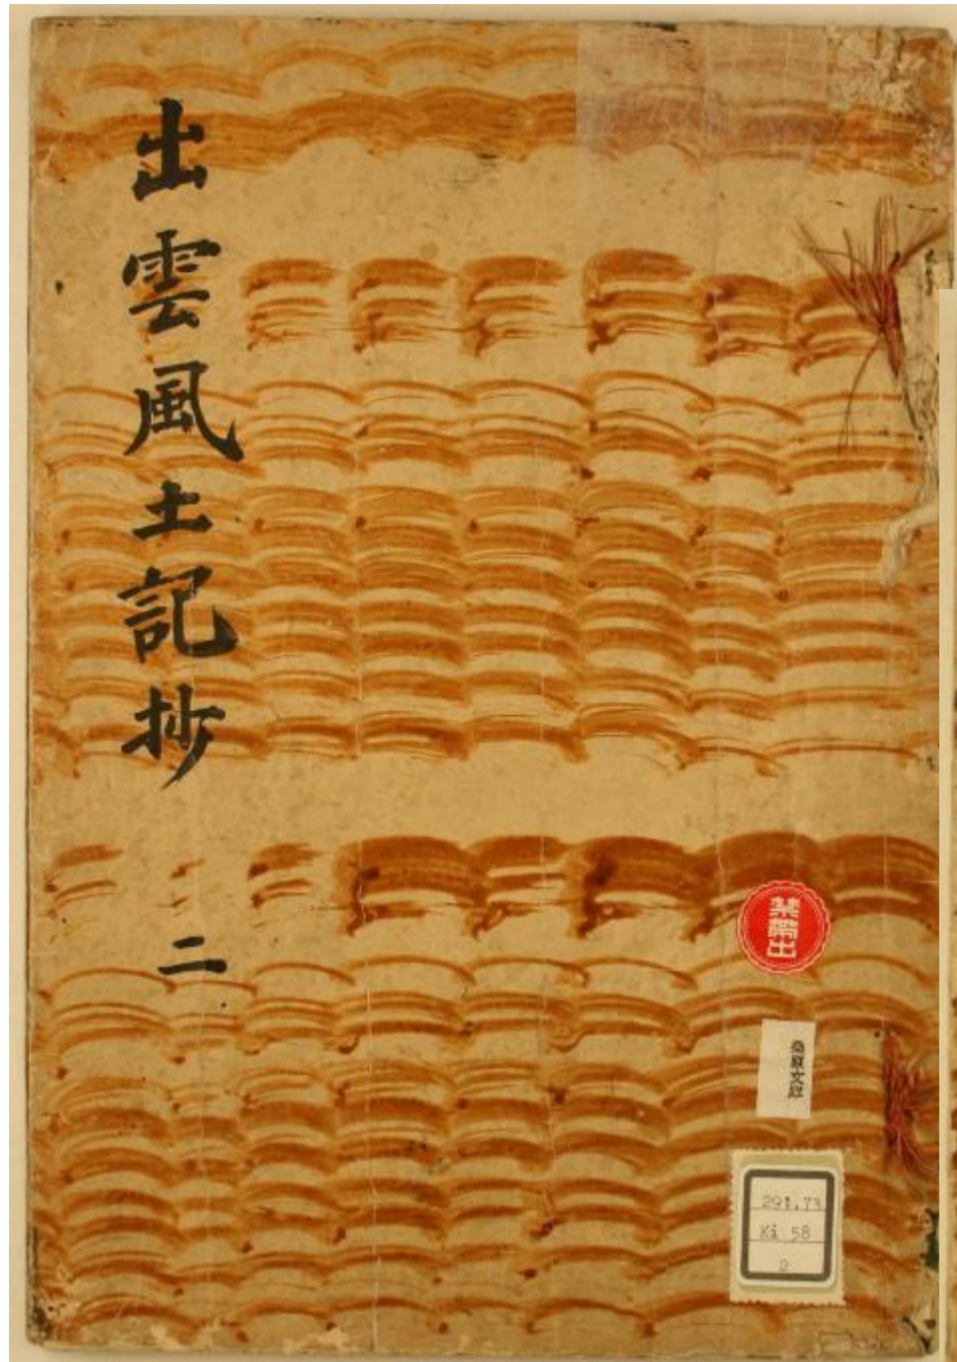 出雲風土記抄 二
禁帶出
桑原文庫
291.73
Ki 58
2